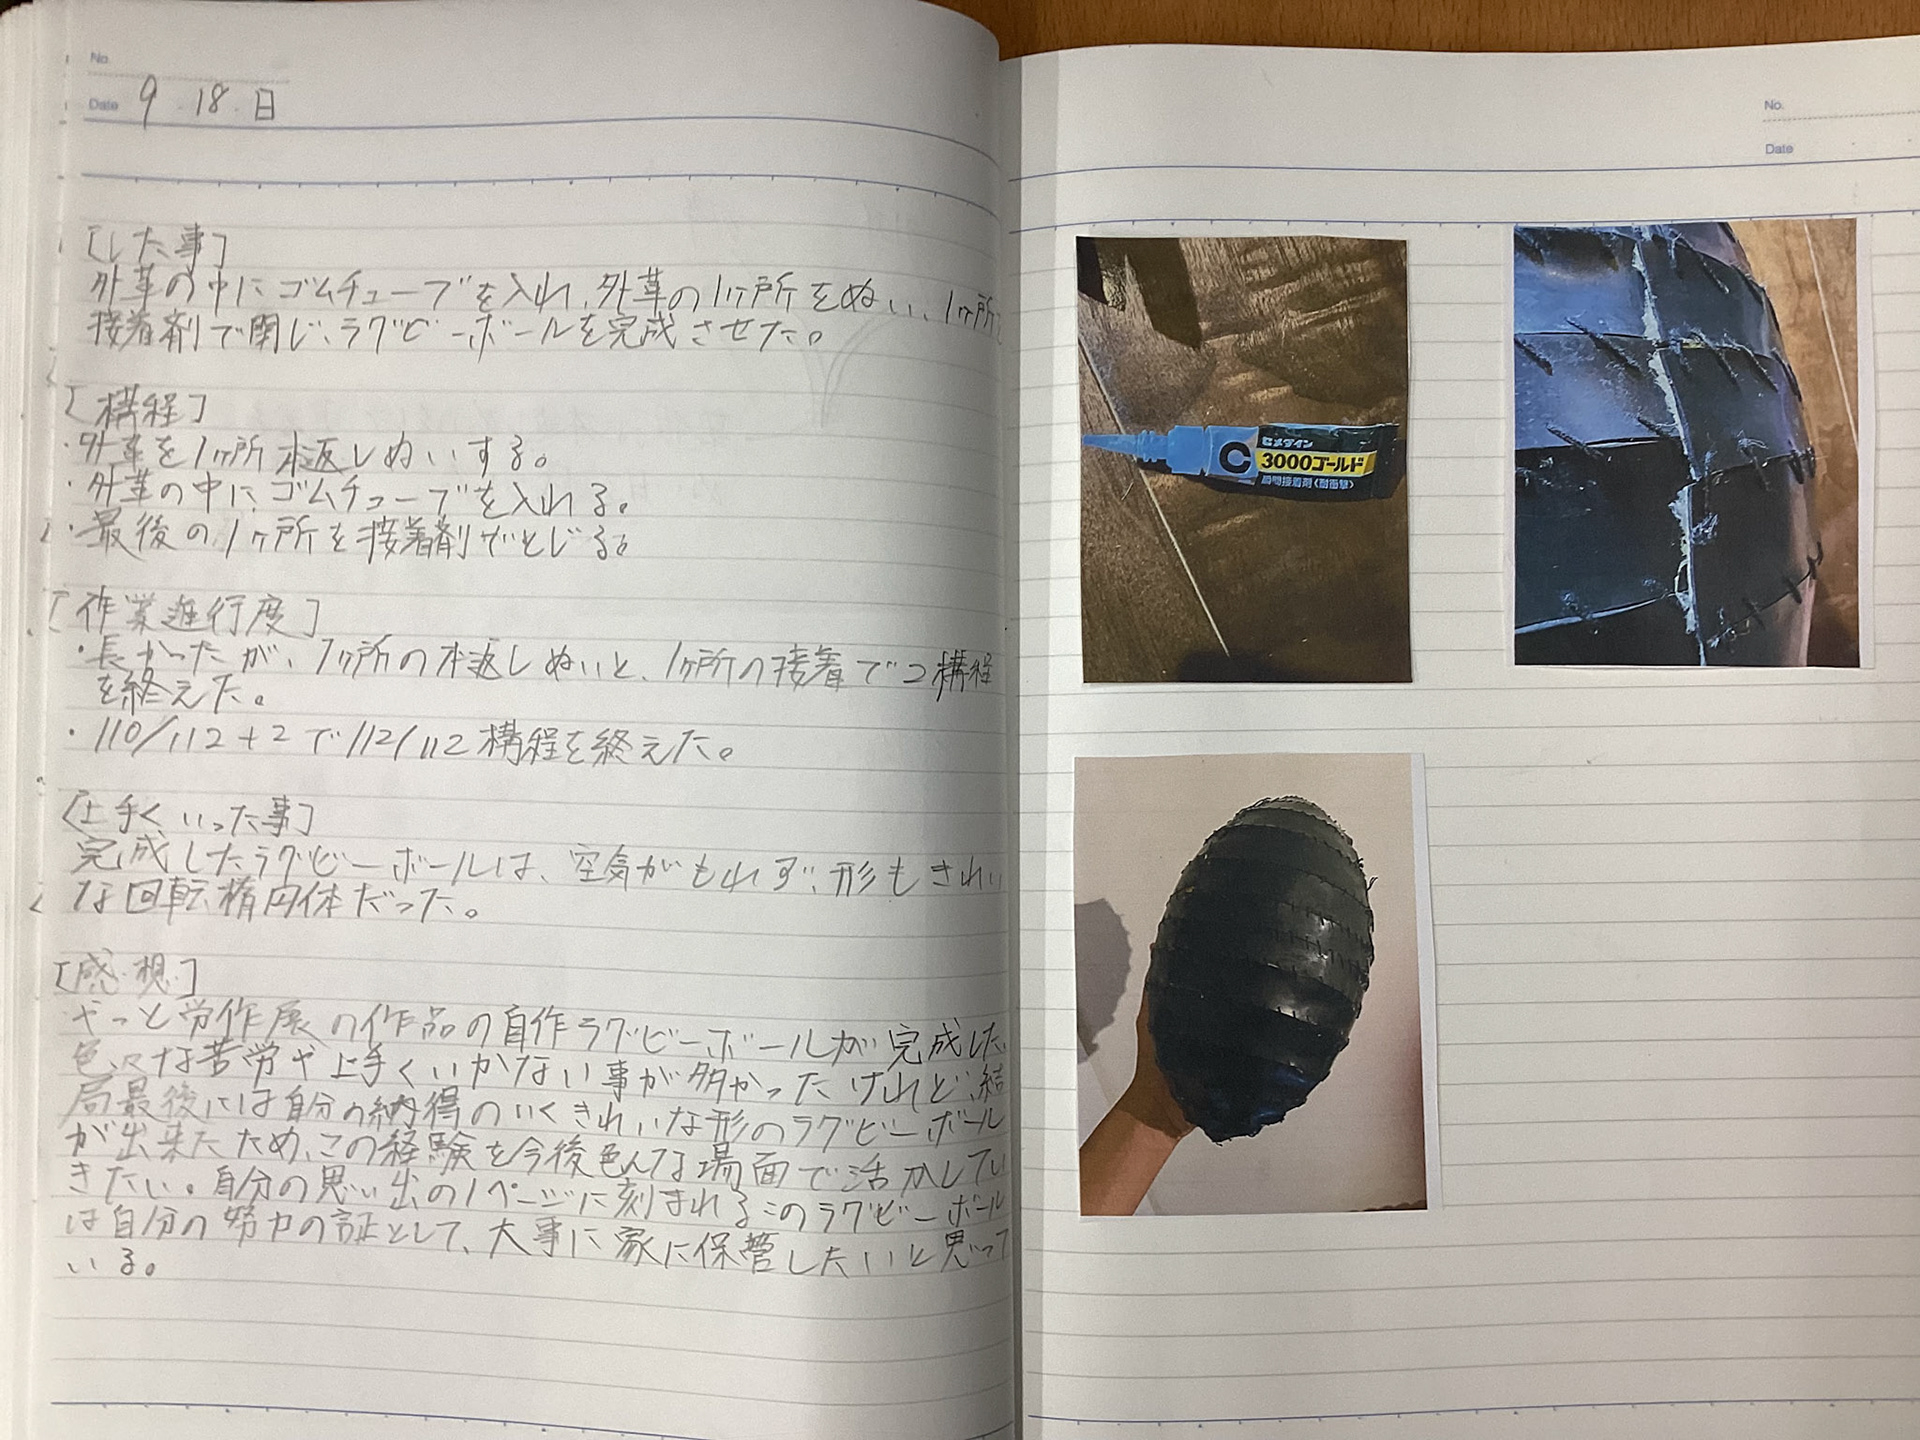 No.
Date 9・18・日
[した事]
外革の中にゴムチューブを入れ、外革の1ヶ所をぬい、1ヶ所を
接着剤で閉じ、ラグビーボールを完成させた。
[構程]
・外革を1ヶ所本返しぬいする。
・外革の中にゴムチューブを入れる。
・最後の1ヶ所を接着剤でとじる。
[作業進行度]
・長かったが、1ヶ所の本返しぬいと、1ヶ所の接着で2構程
を終えた。
・110/112+2で112/112構程を終えた。
[上手くいった事]
完成したラグビーボールは、空気がもれず、形もきれい
な回転楕円体だった。
[感想]
やっと労作展の作品の自作ラグビーボールが完成した。
色々な苦労や上手くいかない事が多かったけれど、結
局最後には自分の納得のいくきれいな形のラグビーボール
が出来たため、この経験を今後色んな場面で活かしてい
きたい。自分の思い出の1ページに刻まれるこのラグビーボール
は自分の努力の証として、大事に家に保管したいと思って
いる。
No.
Date
C
セメダイン
3000ゴールド
瞬間接着剤〈耐衝撃〉